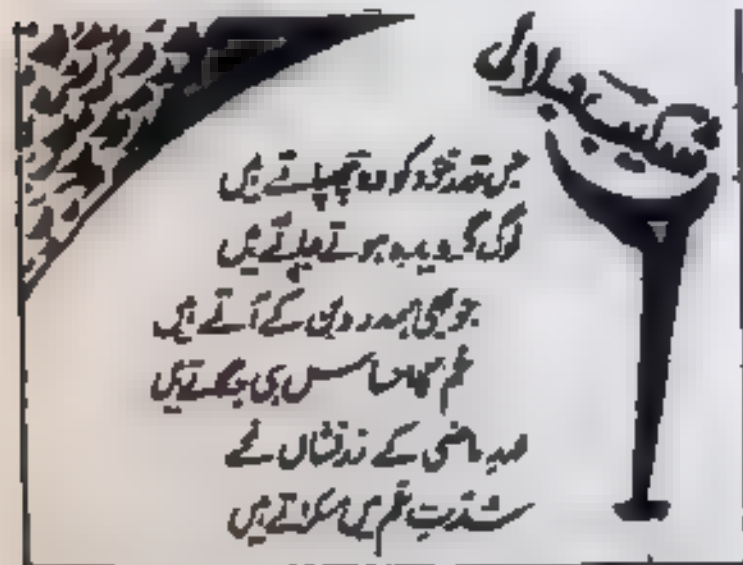 شکیب جلالی
جس قدر خود کو وہ چھپاتے ہیں
لوگ گرویدہ ہوتے جاتے ہیں
جو بھی ہمدرد بن کے آتے ہیں
غم کا احساس ہی جگاتے ہیں
عہدِ ماضی کے زرفشاں لمحے
شدتِ غم میں مسکراتے ہیں